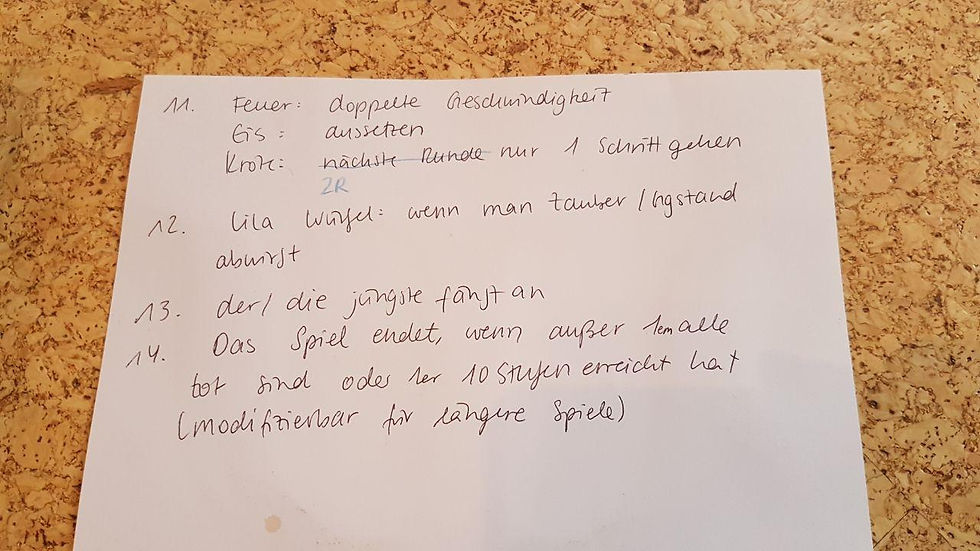 11. Feuer: doppelte Geschwindigkeit
Eis: aussetzen
Kröte: nächste Runde nur 1 Schritt gehen
2R
12. Lila Würfel: wenn man Zauber /
abwirft
13. der/ die jüngste fängt an
14. Das Spiel endet, wenn außer 1em alle
tot sind oder 1er 10 Stufen erreicht hat
(modifizierbar für längere Spiele)